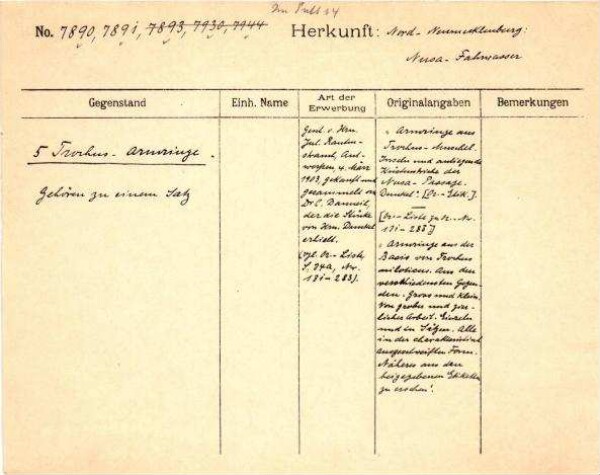 No. 7890, 7891, 7893, 7930, 7944
Herkunft: Nord-Neumecklenburg:
Nusa-Fahrwasser
Gegenstand
Einh. Name
Art der
Erwerbung
Originalangaben
Bemerkungen
5 Trochus-Armringe.
Gehören zu einem Satz
Gesch. v. Hrn.
Jul. Rauten-
strauch, Ant-
werpen, 4. März
1903, gekauft und
gesammelt von
Dr. C. Danneil,
der die Stücke
von Hrn. Dunckel
erhielt.
(vgl. Or-Liste,
S. 24a, Nr.
181-288).
"Armringe aus
Trochus-
Inseln und anliegende
Küstenstriche der
Nusa-Passage.
Dunkel". [Or-Etik.]
[Or-Liste zu Nr.
181-288]
"Armringe aus der
Basis von Trochus
niloticus. Aus den
verschiedensten Gegen-
den. Gross und klein.
Von grober und zier-
licher Arbeit. Einzeln
und in Sätzen. Alle
in der charakteristisch
ausgeschweiften Form.
Näheres aus den
beigegebenen Etiketten
zu ersehen".